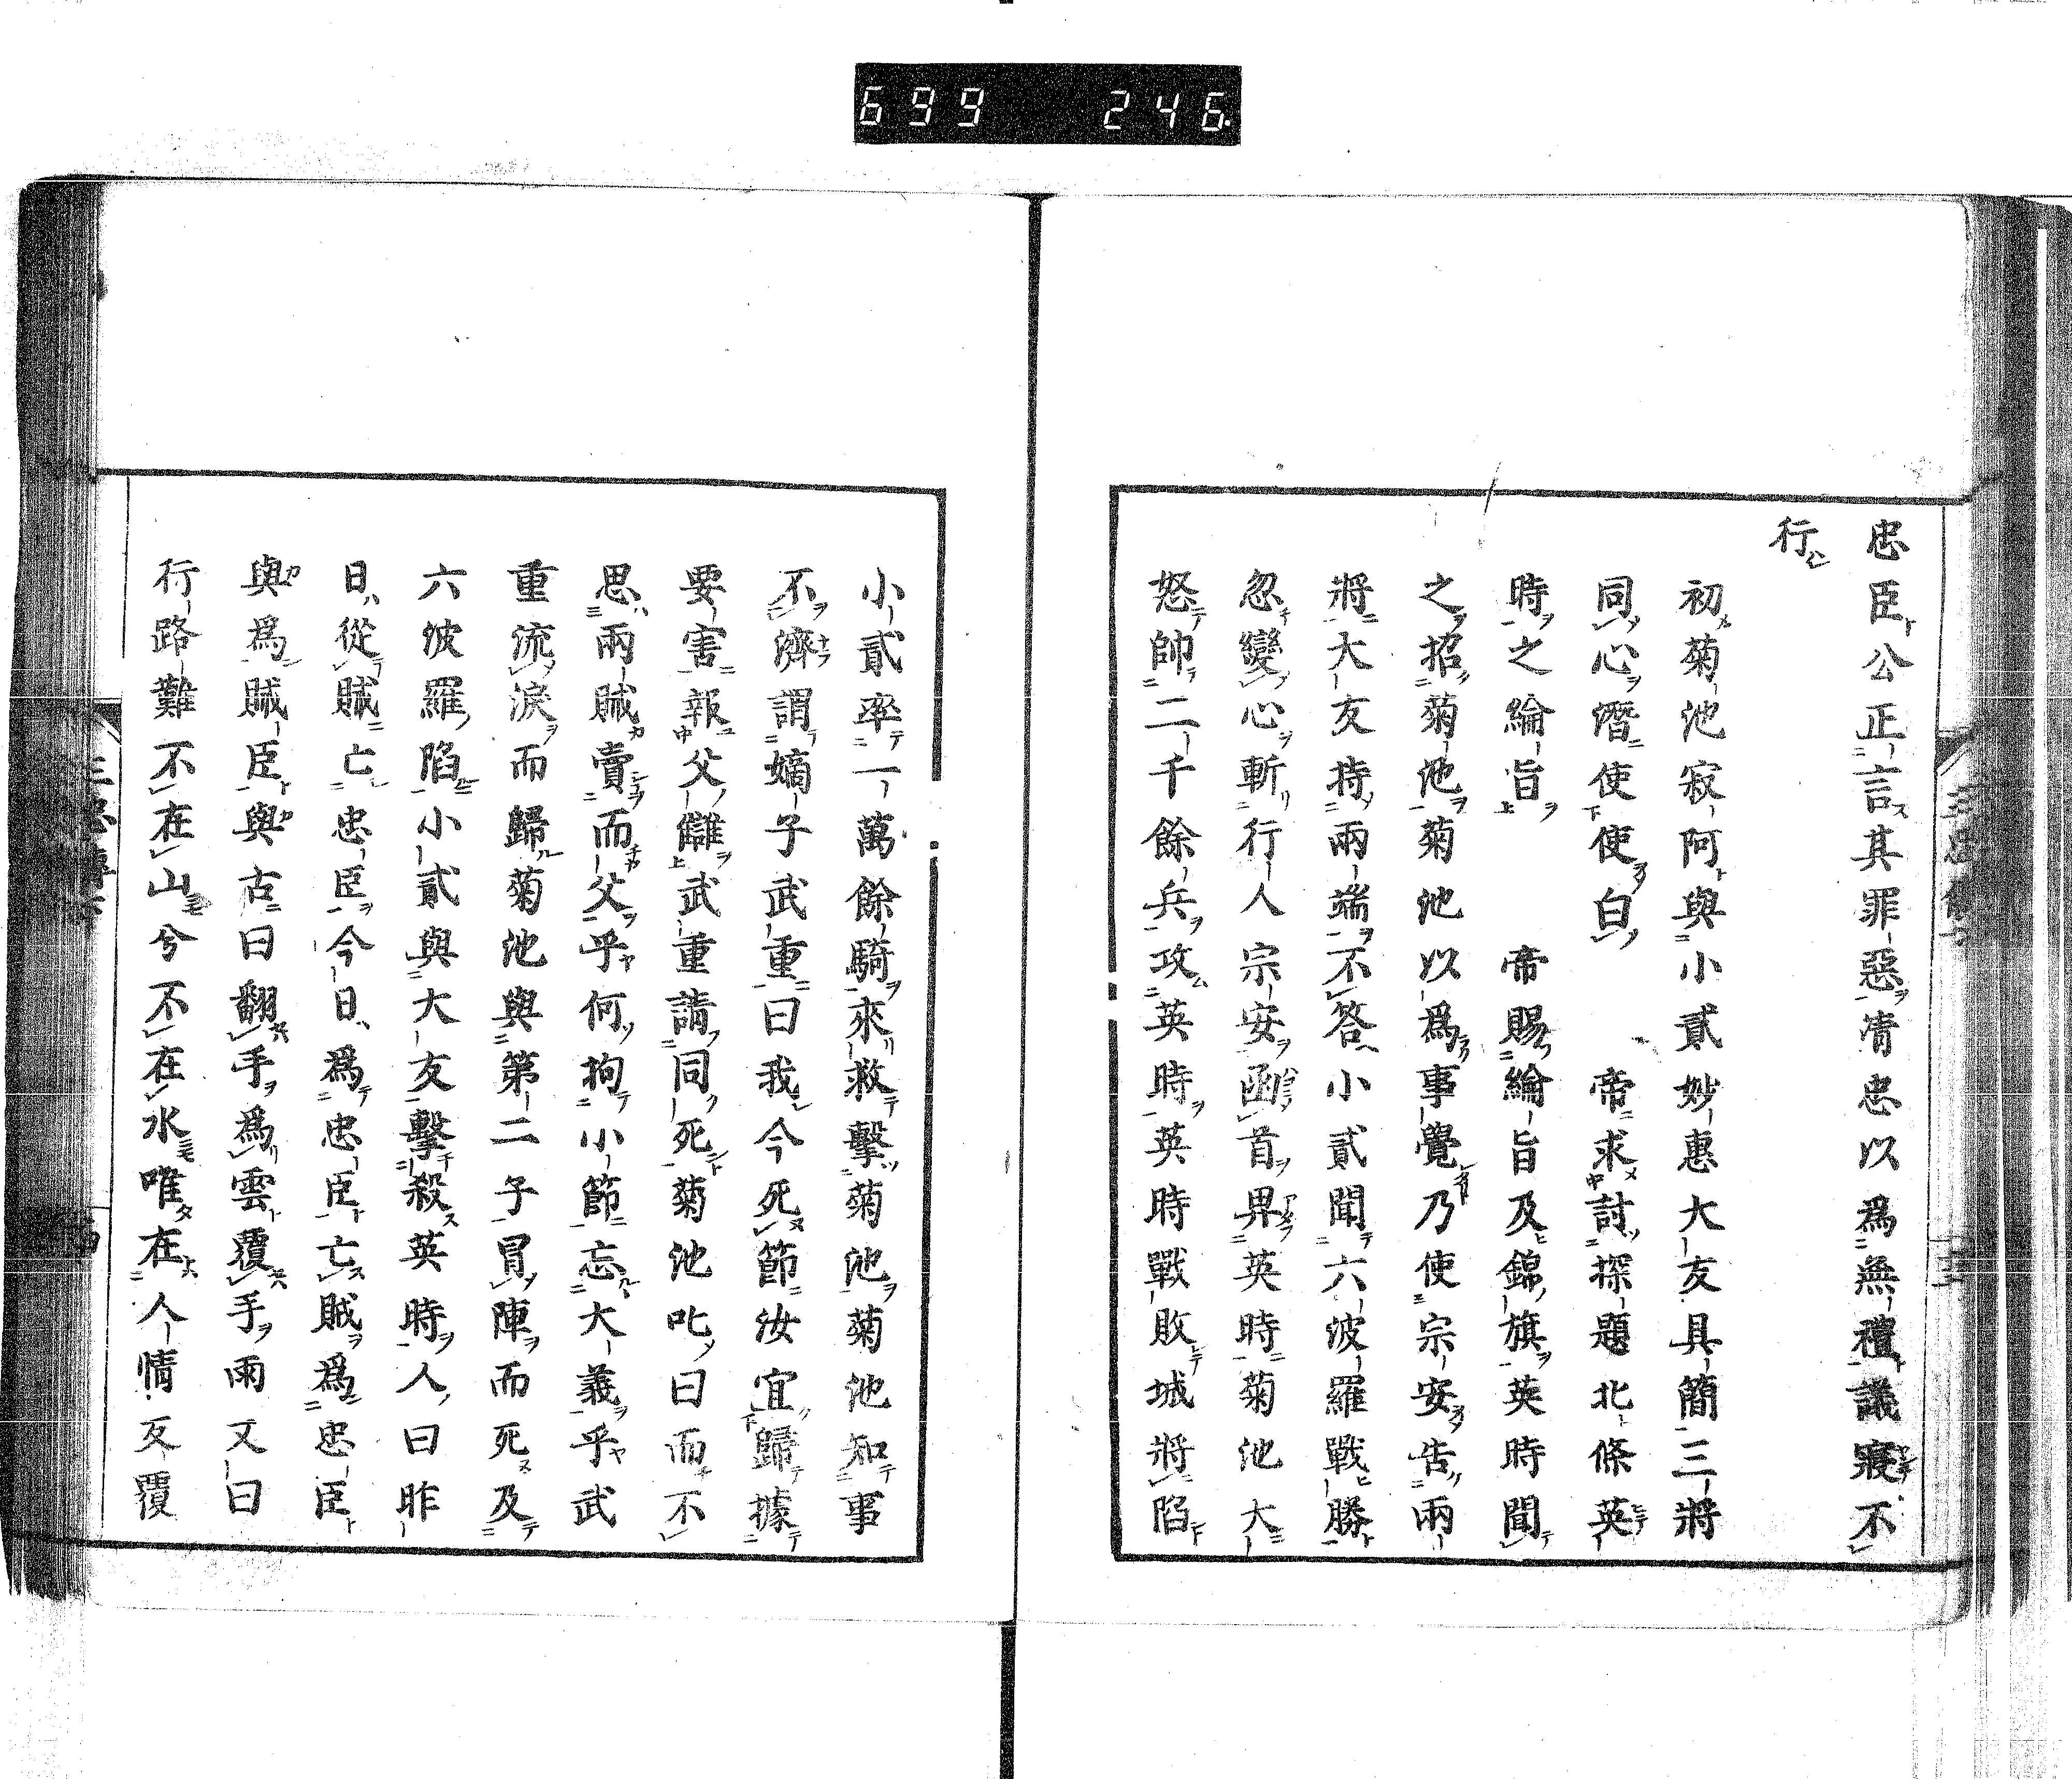 699 246
忠臣公正言其罪惡清忠以爲無禮議寢不
行
初菊池寂阿與小貳妙惠大友具簡三將
同心潛使使白 帝求討探題北條英
時之綸旨 帝賜綸旨及錦旗英時聞
之招菊池菊池以爲事覺乃使宗安告兩
將大友持兩端不答小貳聞六波羅戰勝
忽變心斬行人宗安函首畀英時菊池大
怒帥二千餘兵攻英時英時戰敗城將陷
小貳率一萬餘騎來救擊菊池菊池知事
不濟謂嫡子武重曰我今死節汝宜歸據
要害報父讎武重請同死菊池叱曰而不
思兩賊賣而父乎何拘小節忘大義乎武
重流淚而歸菊池與第二子冒陣而死及
六波羅陷小貳與大友擊殺英時人曰昨
日從賊亡忠臣今日爲忠臣亡賊爲忠臣
與爲賊臣與古曰翻手爲雲覆手雨又曰
行路難不在山兮不在水唯在人情反覆